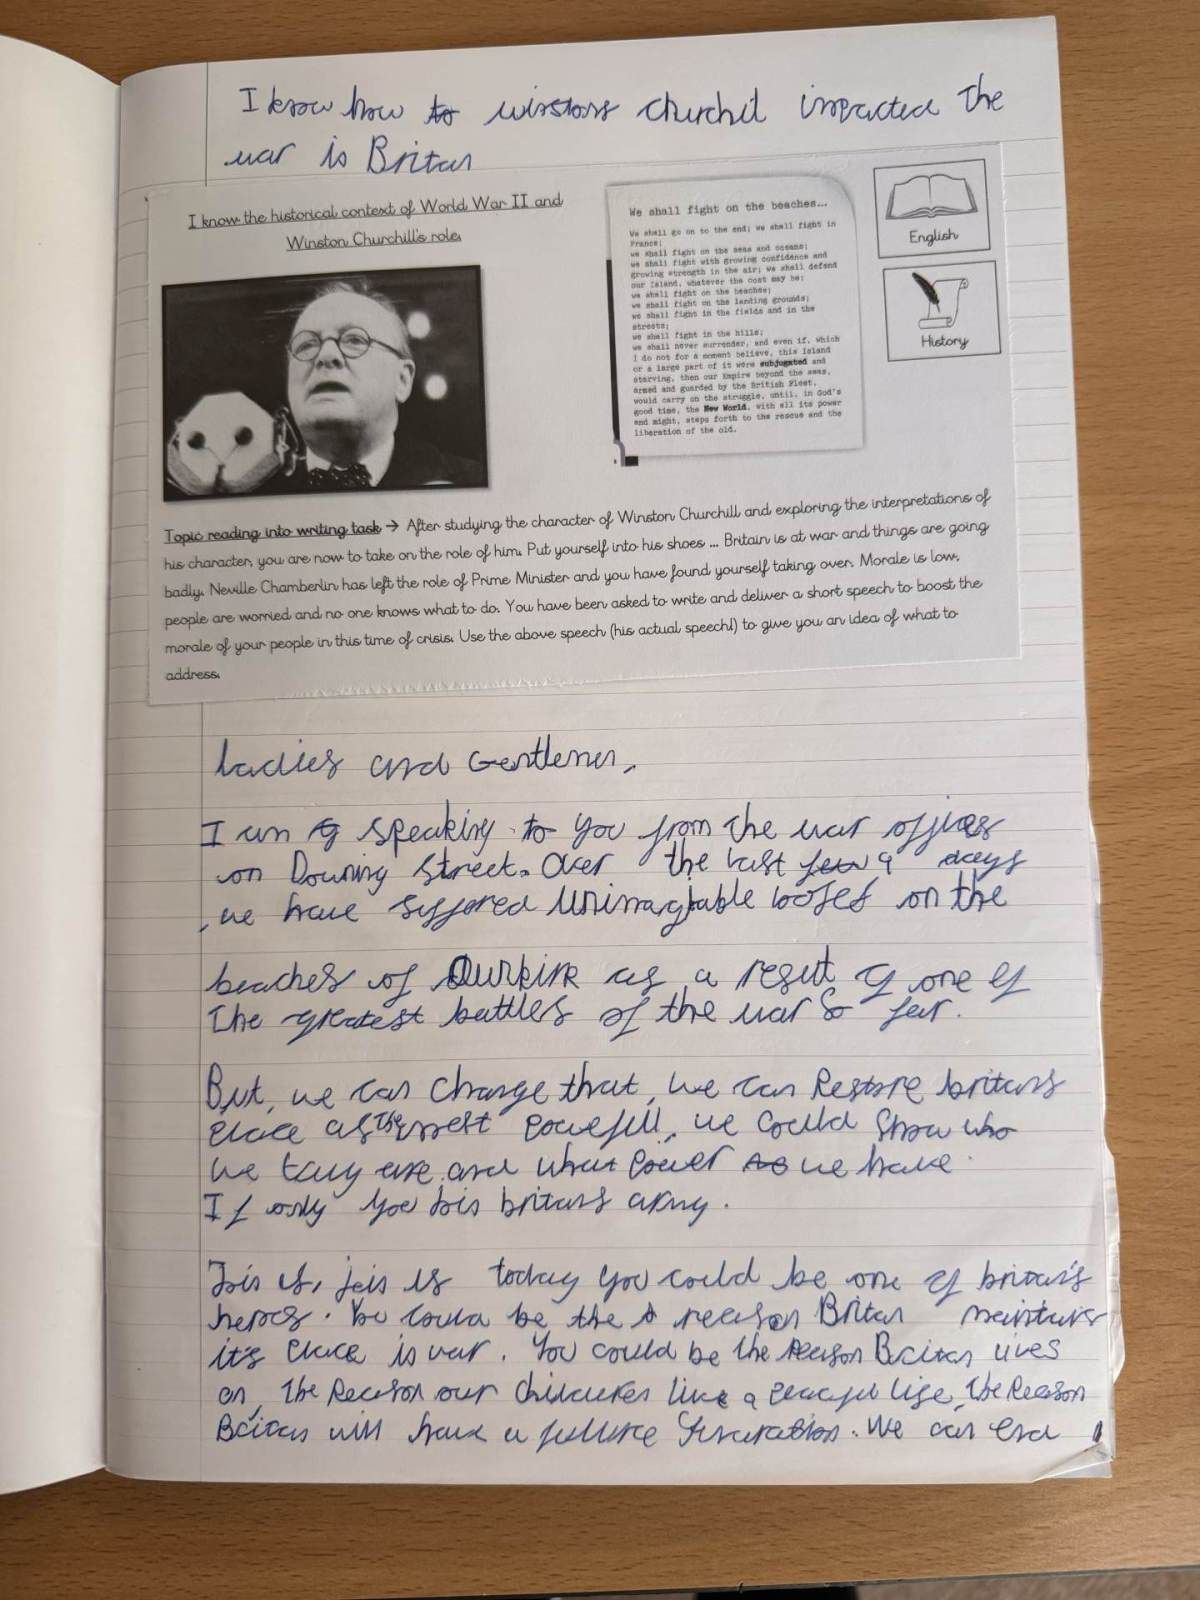 I know how to winstons churchil impacted the
war is Britan
I know the historical context of World War II and
Winston Churchill's role.
We shall fight on the beaches...
We shall go on to the end; we shall fight in
France;
we shall fight on the seas and oceans;
we shall fight with growing confidence and
growing strength in the air; we shall defend
our Island, whatever the cost may be;
we shall fight on the beaches;
we shall fight on the landing grounds;
we shall fight in the fields and in the
streets;
we shall fight in the hills;
we shall never surrender, and even if, which
I do not for a moment believe, this Island
or a large part of it were subjugated and
starving, then our Empire beyond the seas,
armed and guarded by the British Fleet,
would carry on the struggle, until, in God's
good time, the New World, with all its power
and might, steps forth to the rescue and the
liberation of the old.
English
History
Topic reading into writing task → After studying the character of Winston Churchill and exploring the interpretations of
his character, you are now to take on the role of him. Put yourself into his shoes ... Britain is at war and things are going
badly. Neville Chamberlin has left the role of Prime Minister and you have found yourself taking over. Morale is low,
people are worried and no one knows what to do. You have been asked to write and deliver a short speech to boost the
morale of your people in this time of crisis. Use the above speech (his actual speech!) to give you an idea of what to
address.
Ladies and Gentlemen,
I am speaking to you from the war offices
on Downing Street. Over the last few 9 days
, we have suffered looses on the
beaches of Dunkirk as a result of one of
the greatest battles of the war so far.
But, we can change that, we can Restore britans
place as the most powefull, we could show who
we are and what power we have.
If only you join britans army.
Join us, join us today you could be one of britain's
heroes. You could be the reason Britan maintains
it's place in war. You could be the reason Britan lives
on, the reason our children live a peaceful life, the reason
Britan will have a future generation. We can end